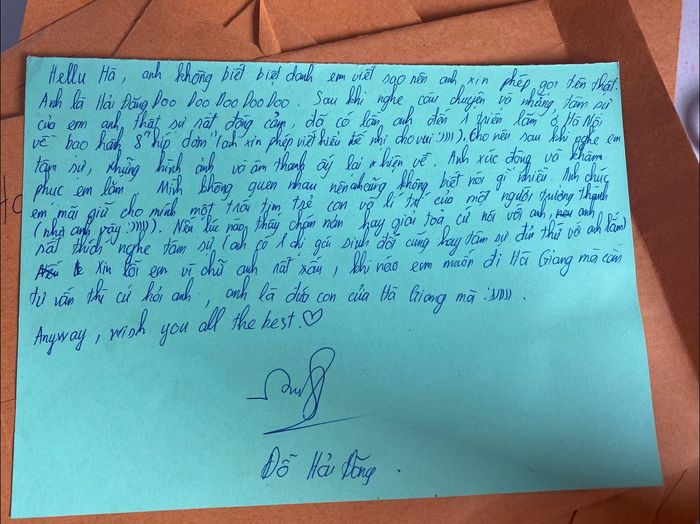 Hellu Hà, anh không biết biệt danh em viết sao nên anh xin phép gọi tên thật.
Anh là Hải Đăng Doo Doo Doo Doo Doo. Sau khi nghe câu chuyện và những tâm sự
của em anh thật sự rất đồng cảm, đã có lần anh đến 1 triển lãm ở Hà Nội
về bao hành 8 "híp dơm" (anh xin phép viết kiểu thế nhi cho vui :)))). Cho nên sau khi nghe em
tâm sự những hình ảnh và âm thanh ấy lại hiện về. Anh xúc động và khâm
phục em lắm. Mình không quen nhau nên không biết nói gì nhiều. Anh chúc
em mãi giữ cho mình một trái tim trẻ con và lí trí của một người trưởng thành
(như anh vậy :)))). Nếu lúc nào thấy chán nản hay giải toả cứ nói với anh, anh
rất thích nghe tâm sự (anh có 1 chị gái sinh đôi cũng hay tâm sự đủ thứ với anh lắm)
Xin lỗi em vì chữ anh rất xấu, khi nào em muốn đi Hà Giang mà cần
tư vấn thì cứ hỏi anh, anh là đứa con của Hà Giang mà :)))).
Anyway, wish you all the best. ♡
Đỗ Hải Đăng.